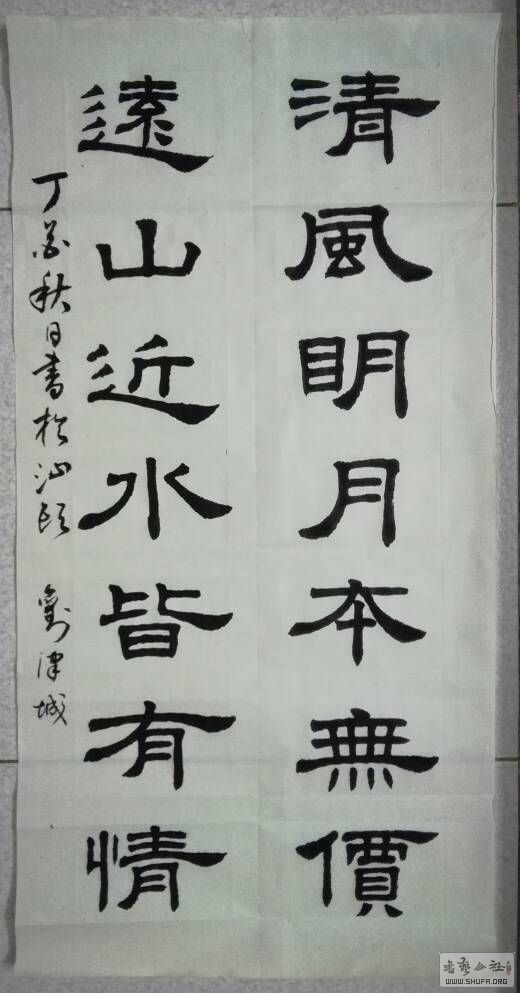 清風明月本無價
遠山近水皆有情
丁酉秋日書於汕頭 劉津城
書藝公社
WWW.SHUFA.ORG